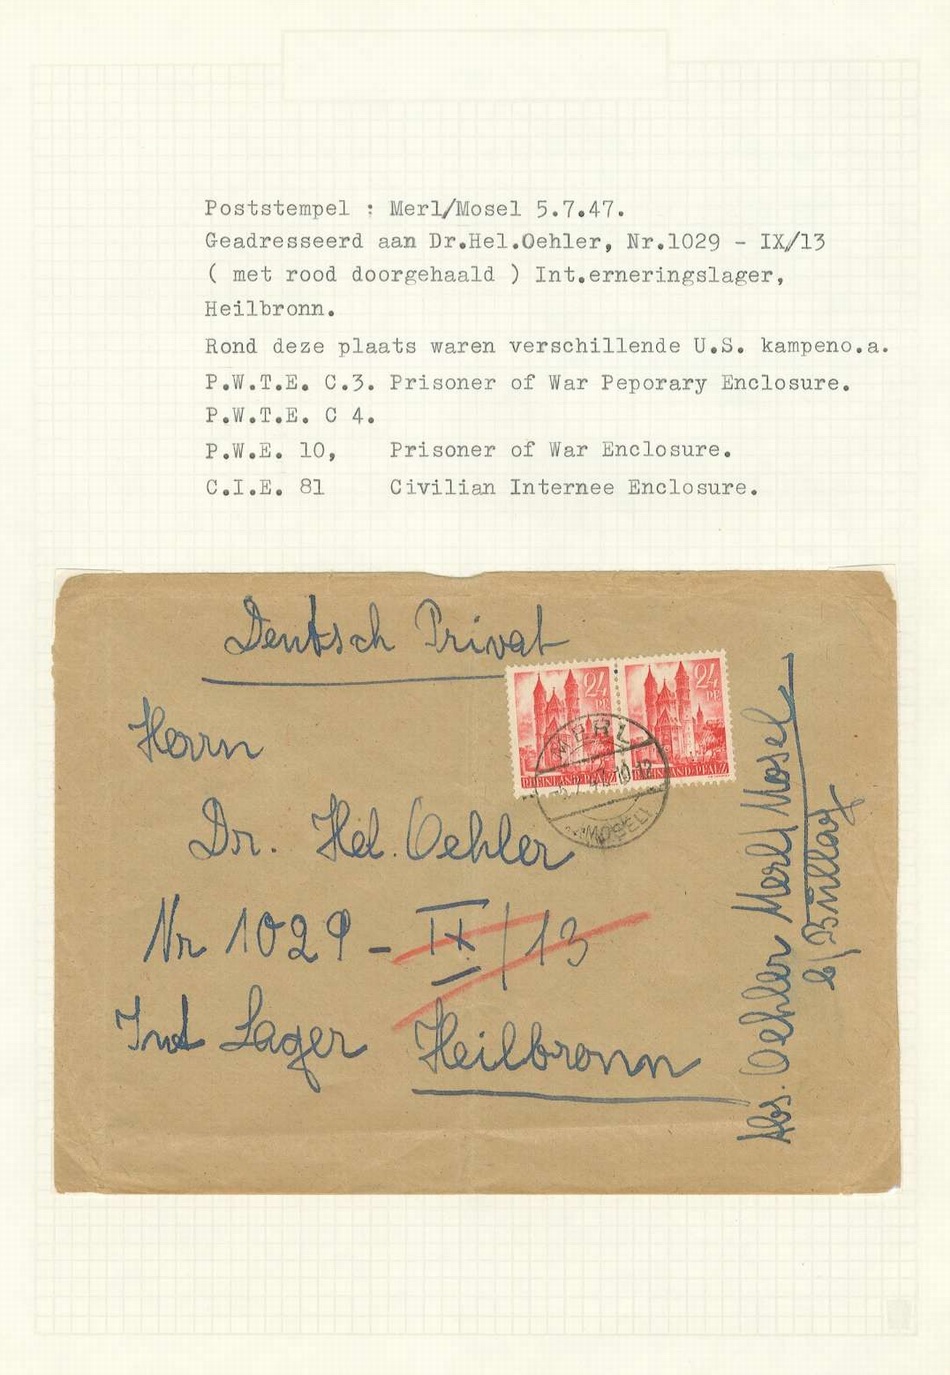 Poststempel : Merl/Mosel 5.7.47.
Geadresseerd aan Dr.Hel.Oehler, Nr.1029 - IX/13
( met rood doorgehaald ) Int.erneringslager,
Heilbronn.
Rond deze plaats waren verschillende U.S. kampeno.a.
P.W.T.E. C.3. Prisoner of War Peporary Enclosure.
P.W.T.E. C 4.
P.W.E. 10, Prisoner of War Enclosure.
C.I.E. 81 Civilian Internee Enclosure.
Deutsch Privat
24 PF
RHEINLAND-PFALZ
24 PF
RHEINLAND-PFALZ
MERL
(MOSEL)
Herrn
Dr. Hel. Oehler
Nr 1029 - IX/13
Int Lager Heilbronn
Abs. Oehler Merl/Mosel
b/Bullay